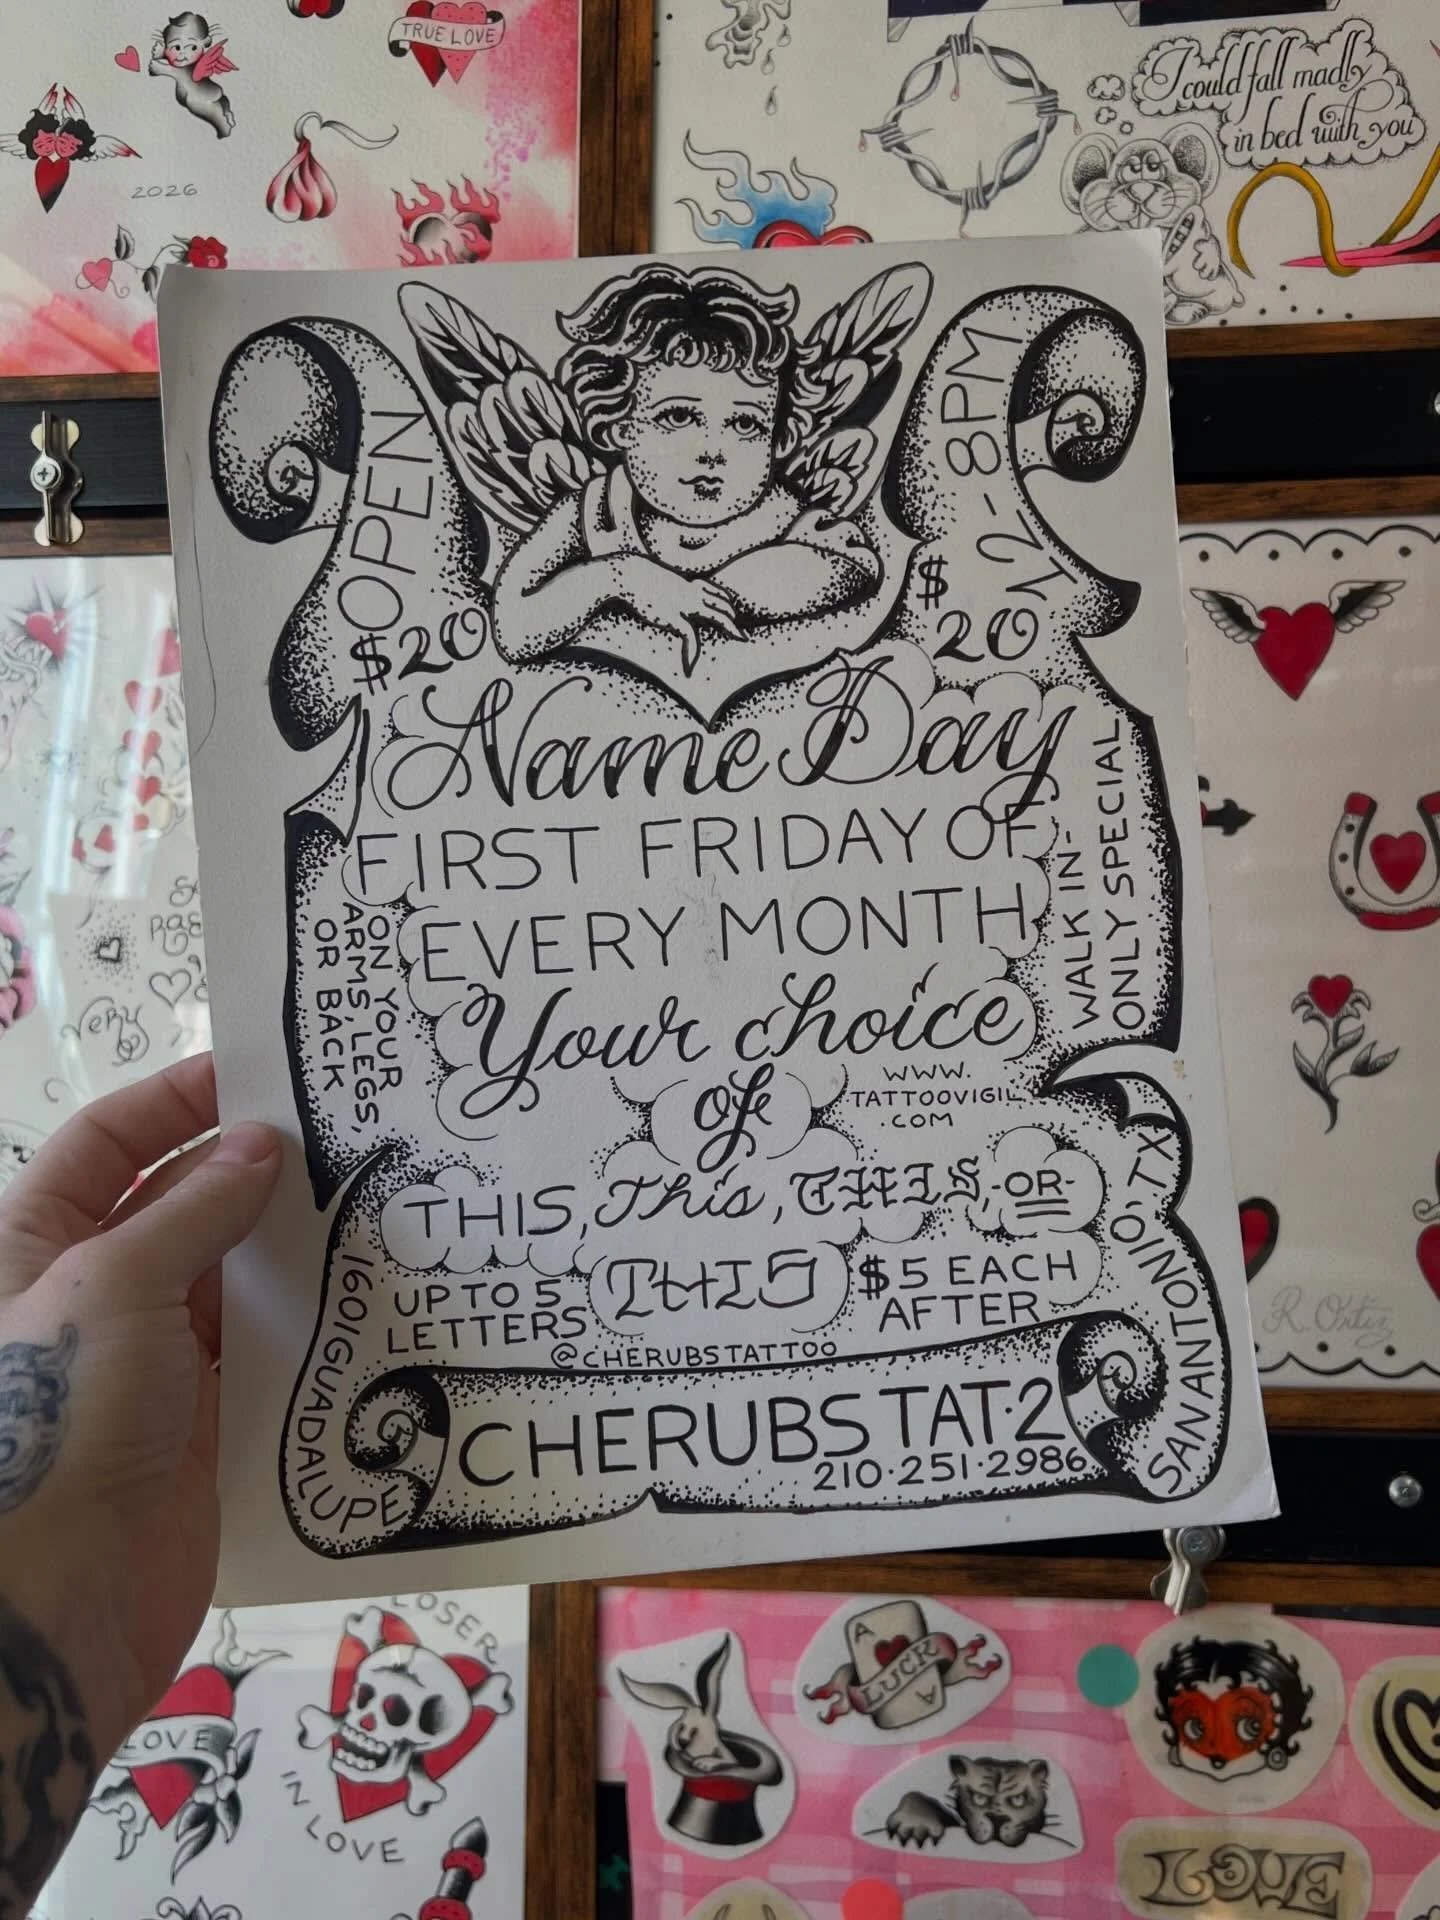 TRUE LOVE
2026
I could fall madly
in bed with you
OPEN
12-8PM
$20
$
20
Name Day
FIRST FRIDAY OF
EVERY MONTH
WALK IN-
ONLY SPECIAL
ON YOUR
ARMS, LEGS,
OR BACK
Your choice
of
WWW.
TATTOOVIGIL
.COM
THIS, This, THIS, -OR-
UP TO 5
LETTERS
THIS
$5 EACH
AFTER
@CHERUBSTATTOO
CHERUBS TAT·2
210·251·2986
1601 GUADALUPE
SAN ANTONIO, TX
very
R. Ortiz
LOSER
IN LOVE
LOVE
A
LUCK
A
LOVE